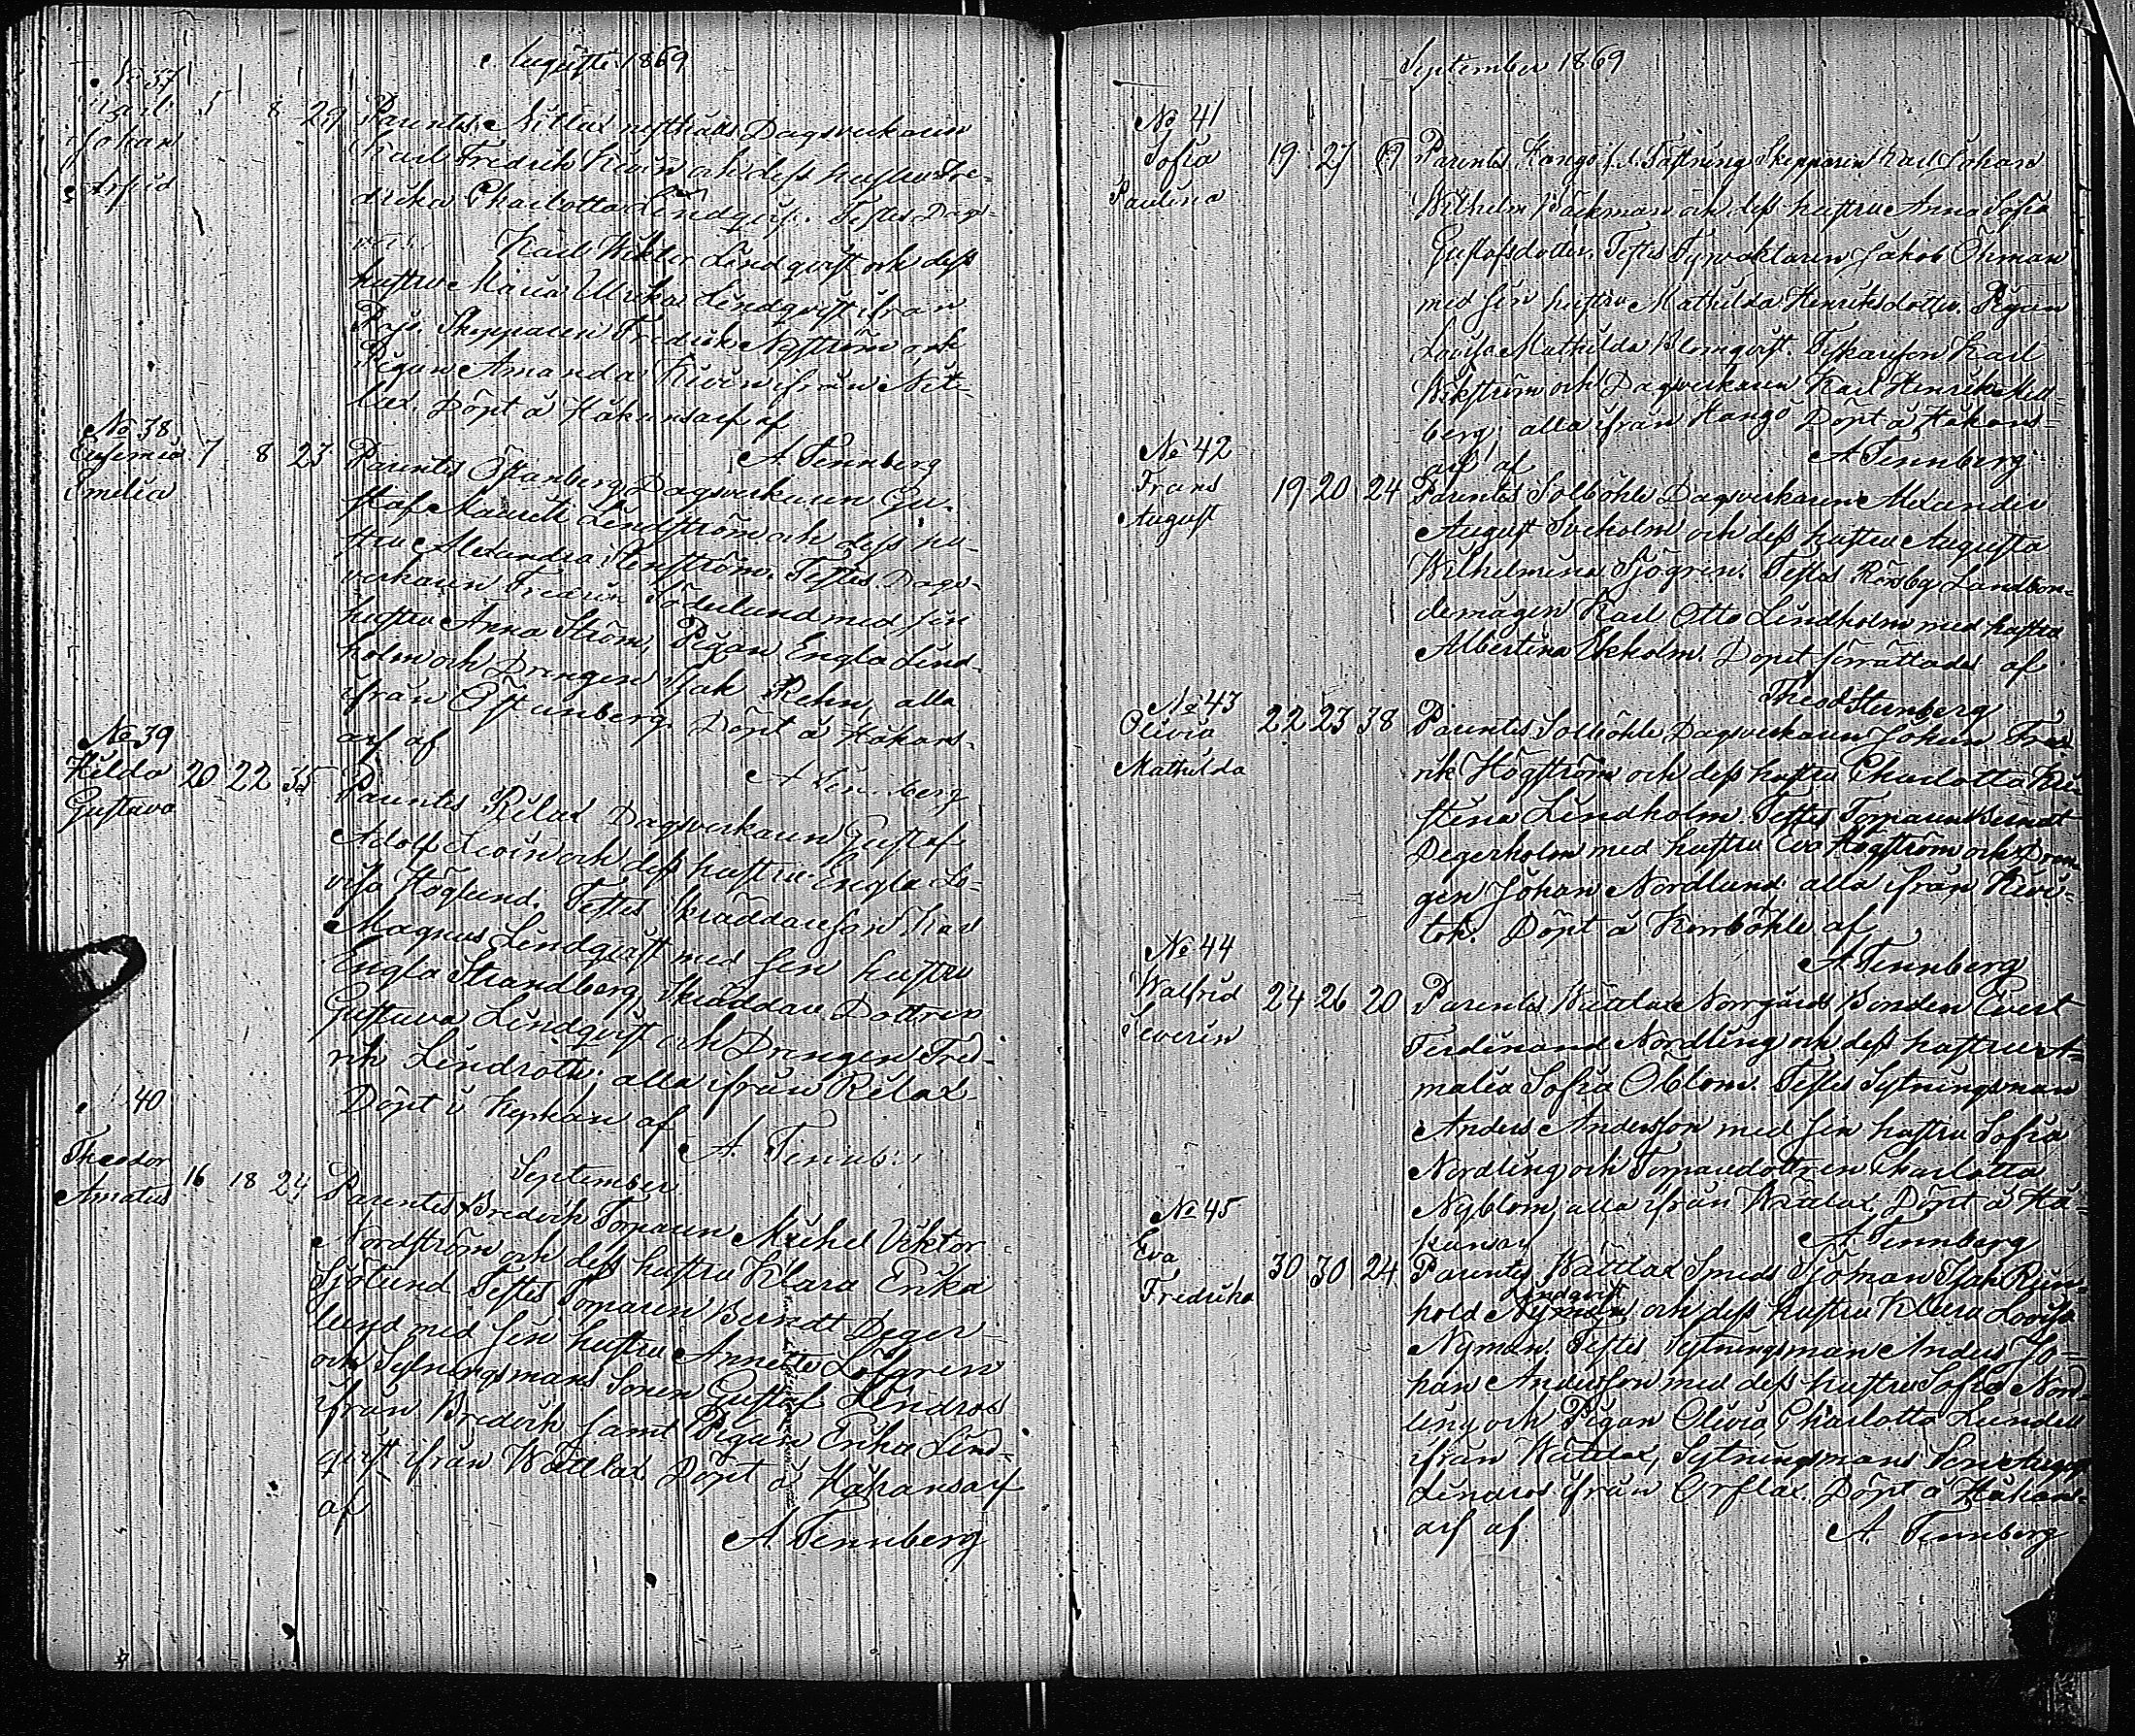 Augusti 1869
No 37
Karl 5 8 29 Parentes, Nitlax
Johan Dagsverkaren
Arfrid Karl Fredrik Kevin och dess hustru Fre-
drika Charlotta Lindqvist. Testes Dags-
Karl Wiktor Lindqvist och dess
hustru Maria Ulrika Lindqvist ifrån
Skepparen Fredrik Nyström och
Pigan Amanda Kevin ifrån Nit-
lax. Döpt å Håkansarf af
A. Tennberg
No 38
Eufemia 7 8 23 Parentes Östanberg Dagsverkaren Gu-
Emelia staf Maurits Lindström och dess hu-
stru Alexandra Stenström. Testes Dags-
verkaren Fredrik Söderlund med sin
hustru Anna Ström, Pigan Engla Lind-
holm och Drengen Isak Rehn, alla
ifrån Östanberg. Döpt å Håkans-
arf af
No 39
Hilda 20 22 35 Parentes Rilax Dagsverkaren Gustaf
Gustava Adolf Levin och dess hustru Engla Lo-
visa Höglund. Testes Skräddaren Karl
Magnus Lindqvist med sin hustru
Engla Strandberg, Skräddare Dottren
Gustava Lindqvist och Drengen Fred-
rik Lindroth; alla ifrån Rilax.
Döpt i af
A. Tennb
40
September
Theodor
Amatus 16 18 24 Parentes Bredvik Torparen Michel Viktor
Nordström och dess hustru Klara Erika
Sjölund. Testes Torparen Berndt Deger-
lund med sin hustru Annette Löfgren
och Sytningsmans Sonen Gustaf Lindroos
ifrån Bredvik samt Pigan Erika Lind-
qvist ifrån Wättlax Döpt å Håkansarf
af
A Tennberg
September 1869
No 41
Sofia 19 27 Parentes Hangö Fästning Skepparen Karl Johan
Paulina Wilhelm Bäckman och dess hustru Anna Sofia
Gustafsdotter. Testes Fyrvaktaren Jakob Öhman
med sin hustru Mathilda Henriksdotter. Pigan
Lovisa Mathilda Blomqvist. Fiskareson Karl
Wikström och Dagsverkaren Karl Henrik Mell-
berg; alla ifrån Hangö Döpt å Håkans-
arf af A Tennberg
No 42
Frans 19 20 24 Parentes Solböhle Dagsverkaren Alexander
August August Sveholm och dess hustru Augusta
Wilhelmina Sjögren. Testes Rösby Landbon-
demågen Karl Otto Lindholm med hustru
Albertina Ekholm. Dopet förrättades af
Theod Stenberg
No 43
Olivia 22 23 38 Parentes Solböhle Dagsverkaren Johan Fred-
Mathilda rik Högström och dess hustru Charlotta Kri-
stina Lindholm. Testes Torparen Berndt
Degerholm med hustru Eva Högström och Dren-
gen Johan Nordlund alla ifrån Kivi-
tok. Döpt å Norrböhle af
A Tennberg
No 44
Walfrid 24 26 20 Parentes Wättlax Norrgårds Bonden Evert
Severin Ferdinand Nordling och dess hustru A-
malia Sofia Öblom. Testes Sytningsman
Anders Andersson med sin hustru Sofia
Nordling och Torparedottren Charlotta
Nyblom, alla ifrån Wättlax, Döpt å Hå-
A Tennberg
No 45
Eva 30 30 24 Parentes Wättlax Smeds Sjöman Isak Rein-
Fredrika Lindqvist
hold Nyman och dess hustru Klara Lovisa
Nyman. Testes Sytningsman Anders Jo-
han Andersson med dess hustru Sofia Nord-
ling och Pigan Olivia Charlotta Lindell
ifrån Wättlax, Sytningsmans Son
Lindros ifrån Orslax. Döpt å Håkans-
arf af A. Tennberg